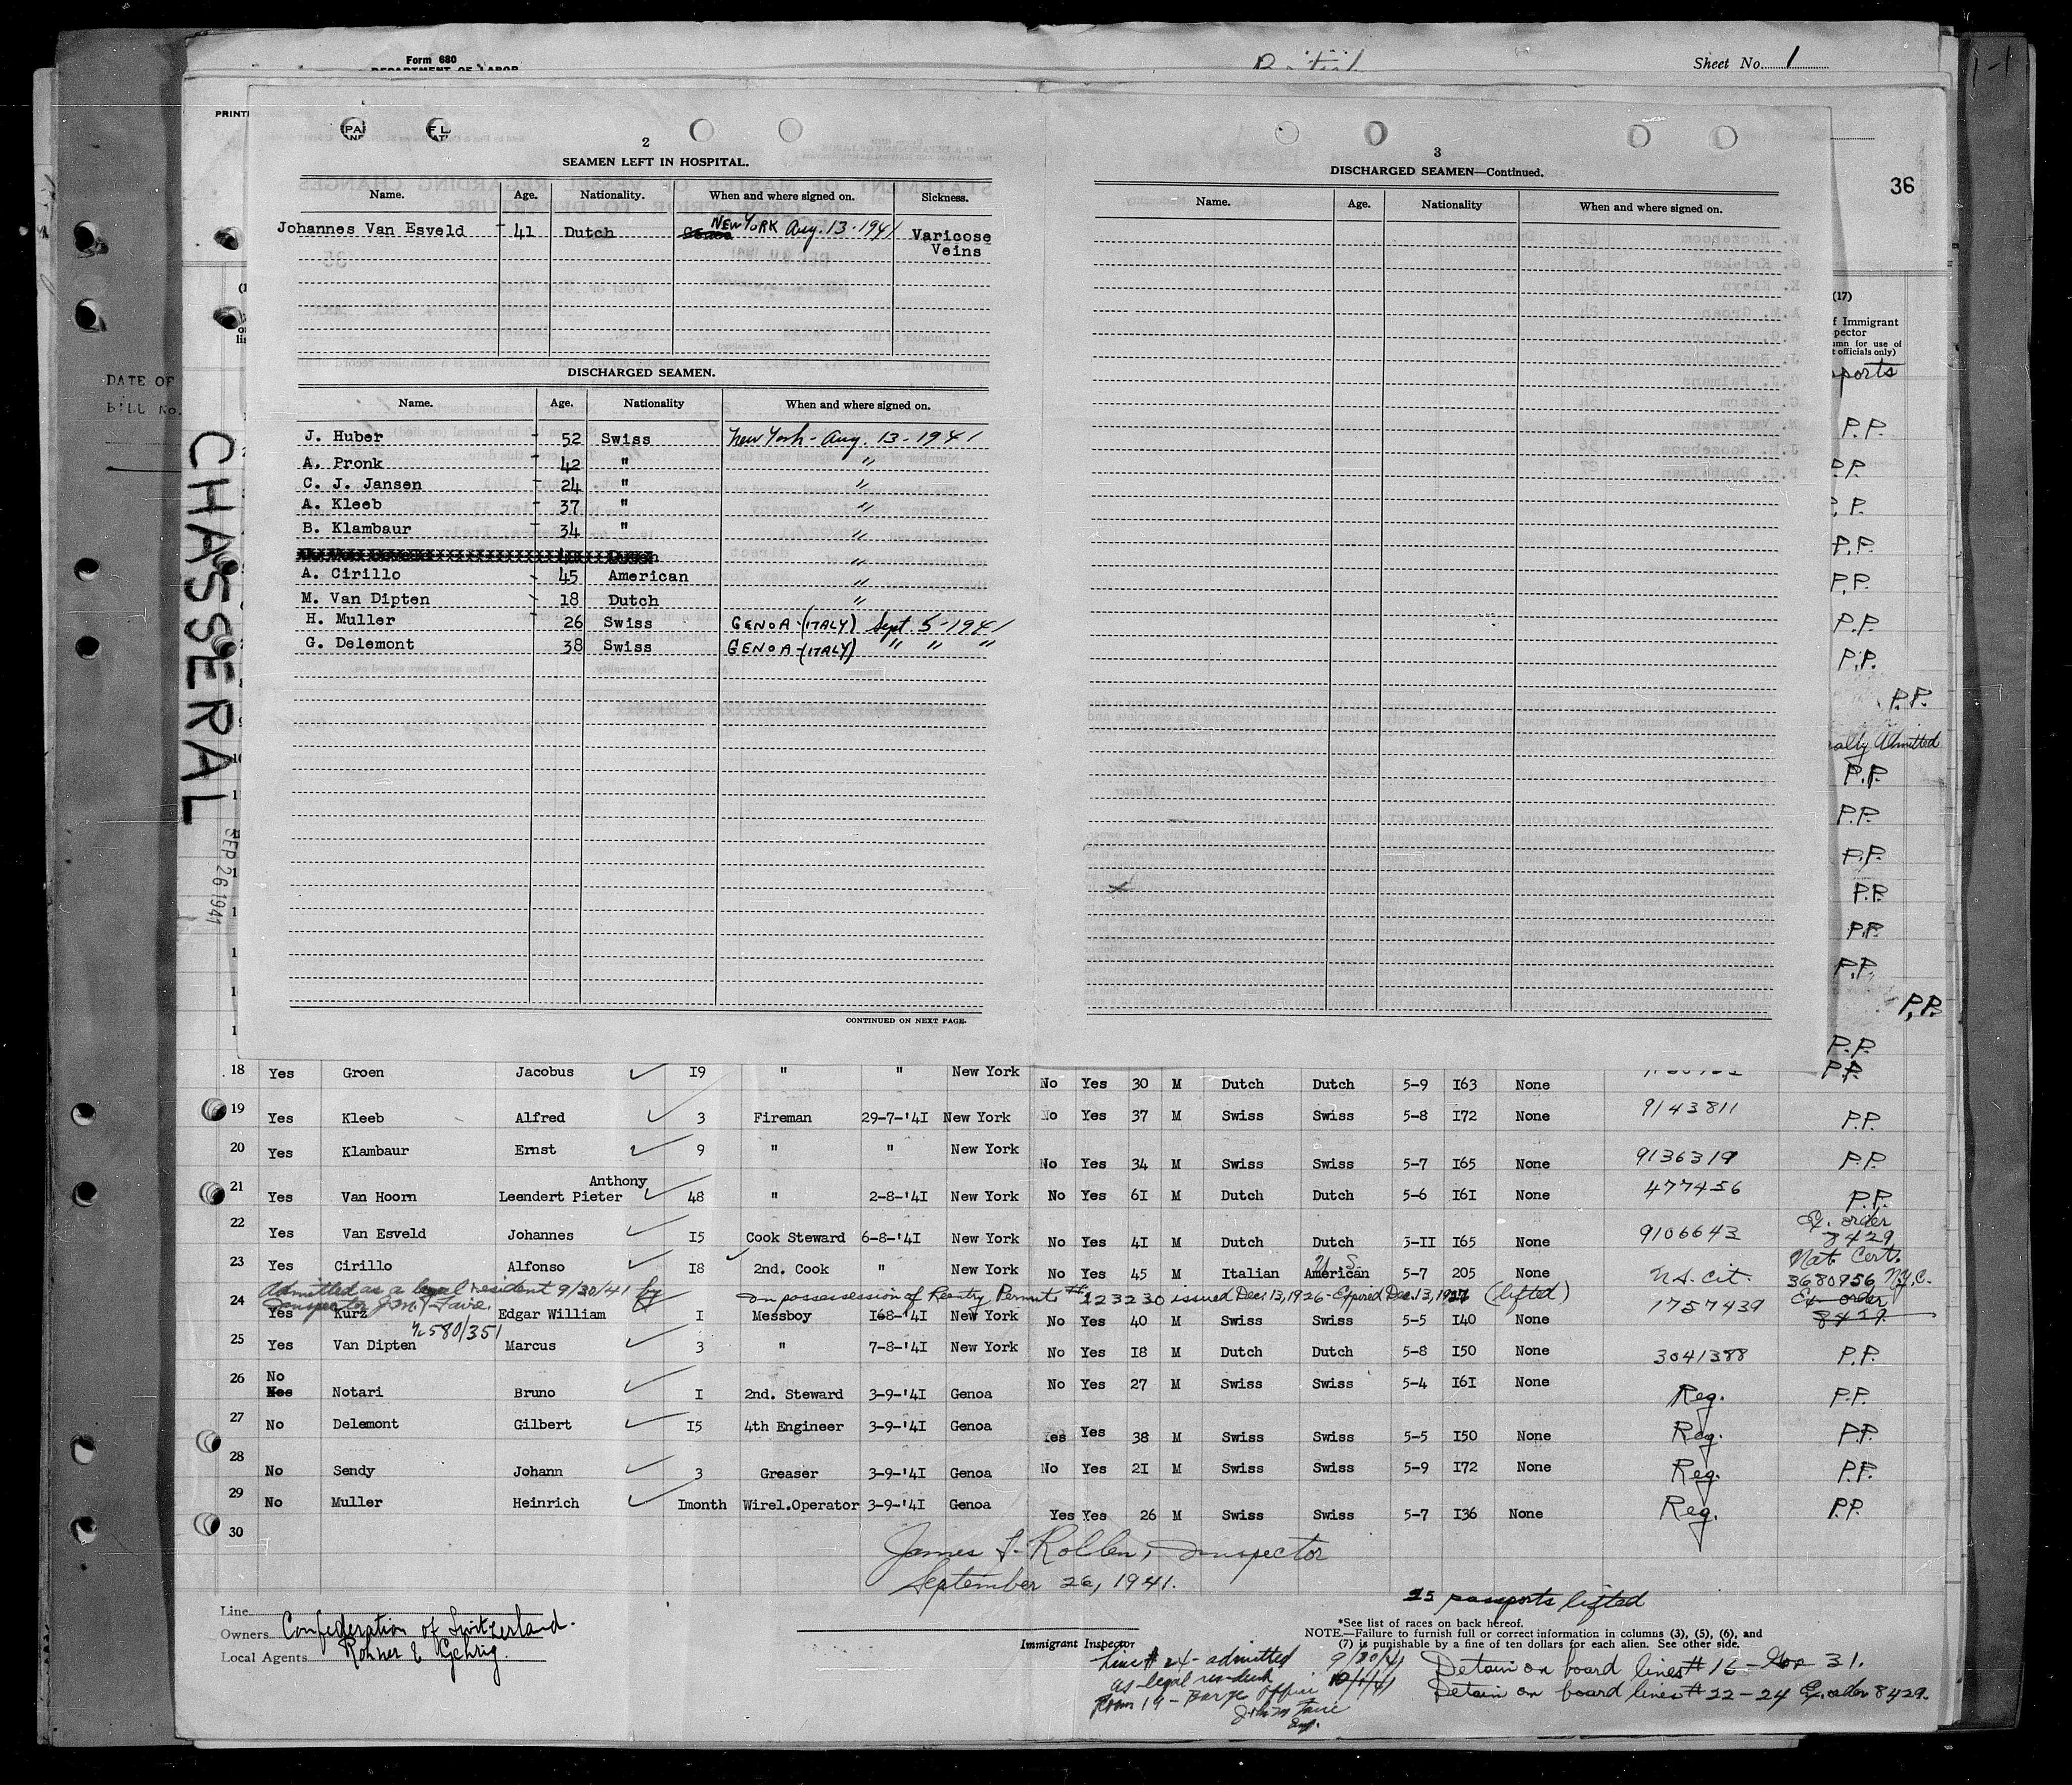 Form 680
DEPARTMENT OF LABOR
Sheet No. 1
36
DATE OF
BILL No.
CHASSERAL
SEP 26 1941
2
SEAMEN LEFT IN HOSPITAL.
Name. Age. Nationality. When and where signed on. Sickness.
Johannes Van Esveld 41 Dutch NEW YORK Aug. 13-1941 Varicose
Veins
DISCHARGED SEAMEN.
Name. Age. Nationality When and where signed on.
J. Huber 52 Swiss New York - Aug. 13-1941
A. Pronk 42 " "
C. J. Jansen 24 " "
A. Kleeb 37 " "
B. Klambaur 34 " "
"
A. Cirillo 45 American "
M. Van Dipten 18 Dutch "
H. Muller 26 Swiss GENOA-(ITALY) Sept. 5-1941
G. Delemont 38 Swiss GENOA-(ITALY) " " "
CONTINUED ON NEXT PAGE.
3
DISCHARGED SEAMEN—Continued.
Name. Age. Nationality When and where signed on.
(17)
f Immigrant
pector
umn for use of
t officials only)
ports
P.P.
P.P.
P.P.
P.P.
P.P.
P.P.
P.P.
P.P.
ally Admitted
P.P.
P.P.
P.P.
P.P.
P.P.
P.P.
P.P.
P.P.
18 Yes Groen Jacobus ✓ 19 " " New York No Yes 30 M Dutch Dutch 5-9 163 None P.P.
19 Yes Kleeb Alfred ✓ 3 Fireman 29-7-'41 New York No Yes 37 M Swiss Swiss 5-8 172 None 9143811 P.P.
20 Yes Klambaur Ernst ✓ 9 " " New York No Yes 34 M Swiss Swiss 5-7 165 None 9136319 P.P.
21 Yes Van Hoorn Anthony Leendert Pieter ✓ 48 " 2-8-'41 New York No Yes 61 M Dutch Dutch 5-6 161 None 477456 P.P.
22 Yes Van Esveld Johannes ✓ 15 Cook Steward 6-8-'41 New York No Yes 41 M Dutch Dutch 5-11 165 None 9106643 Ex. order 8429
23 Yes Cirillo Alfonso ✓ 18 ✓ 2nd. Cook " New York No Yes 45 M Italian U.S. American 5-7 205 None U.S. Cit. Nat Cert. 3680956 N.Y.C.
Admitted as a legal resident 9/30/41 by
Inspector J.M. Faire.
In possession of Reentry Permit #123230 issued Dec. 13, 1926 - Expired Dec. 13, 1927 (lifted)
24 Yes Kurz Edgar William 1 Messboy 168-'41 New York No Yes 40 M Swiss Swiss 5-5 140 None 1757439 Ex. order 8429
580/351
25 Yes Van Dipten Marcus ✓ 3 " 7-8-'41 New York No Yes 18 M Dutch Dutch 5-8 150 None 3041388 P.P.
26 No Yes Notari Bruno ✓ 1 2nd. Steward 3-9-'41 Genoa No Yes 27 M Swiss Swiss 5-4 161 None Reg. P.P.
27 No Delemont Gilbert ✓ 15 4th Engineer 3-9-'41 Genoa Yes Yes 38 M Swiss Swiss 5-5 150 None Reg. P.P.
28 No Sendy Johann ✓ 3 Greaser 3-9-'41 Genoa No Yes 21 M Swiss Swiss 5-9 172 None Reg. P.P.
29 No Muller Heinrich ✓ 1month Wirel.Operator 3-9-'41 Genoa Yes Yes 26 M Swiss Swiss 5-7 136 None Reg. P.P.
30
James F. Rollen, Inspector
September 26, 1941.
Line
Owners Confederation of Switzerland.
Local Agents Rohner & Gehrig.
Immigrant Inspector
25 passports lifted
*See list of races on back hereof.
NOTE.—Failure to furnish full or correct information in columns (3), (5), (6), and
(7) is punishable by a fine of ten dollars for each alien. See other side.
Line # 24 - admitted 9/30/41
as legal resident 10/1/41
Room 19 - Barge Office
John M Faire
Insp.
Detain on board lines # 16 - 31.
Detain on board lines # 22-24 Ex. order 8429.